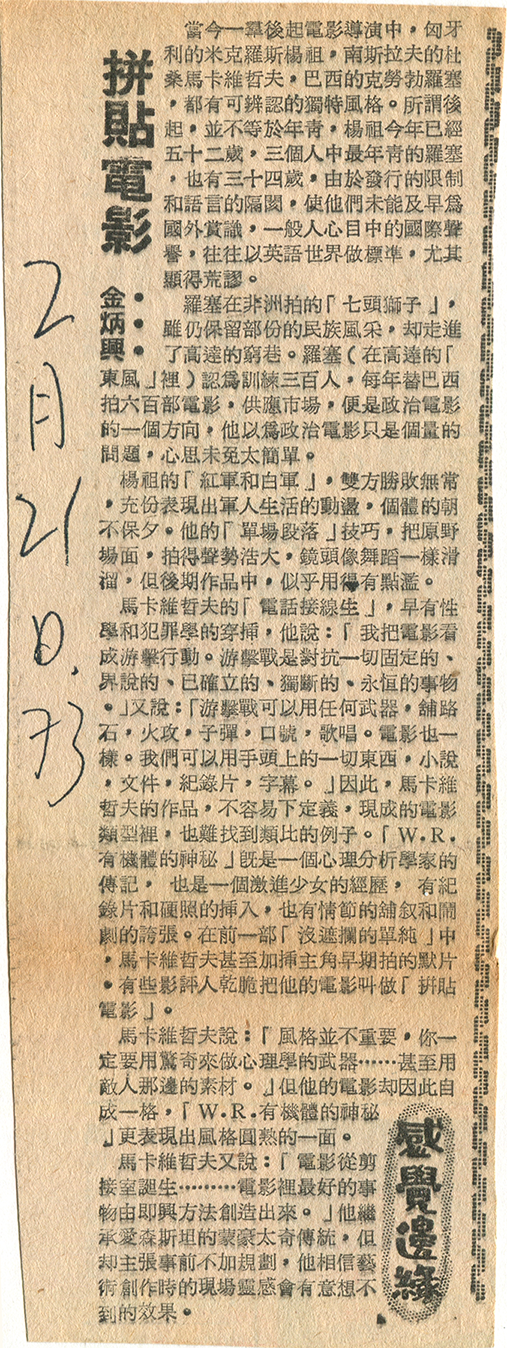 拼貼電影
金炳興
當今一羣後起電影導演中，匈牙
利的米克羅斯楊祖，南斯拉夫的杜
桑馬卡維哲夫，巴西的克勞勃羅塞
，都有可辨認的獨特風格。所謂後
起，並不等於年青，楊祖今年已經
五十二歲，三個人中最年青的羅塞
，也有三十四歲，由於發行的限制
和語言的隔閡，使他們未能及早爲
國外賞識，一般人心目中的國際聲
譽，往往以英語世界做標準，尤其
顯得荒謬。
羅塞在非洲拍的「七頭獅子」，
雖仍保留部份的民族風采，却走進
了高達的窮巷。羅塞（在高達的「
東風」裡）認爲訓練三百人，每年替巴西
拍六百部電影，供應市場，便是政治電影
的一個方向，他以爲政治電影只是個量的
問題，心思未免太簡單。
楊祖的「紅軍和白軍」，雙方勝敗無常
，充份表現出軍人生活的動盪，個體的朝
不保夕。他的「單場段落」技巧，把原野
場面，拍得聲勢浩大，鏡頭像舞蹈一樣滑
溜，但後期作品中，似乎用得有點濫。
馬卡維哲夫的「電話接線生」，早有性
學和犯罪學的穿挿，他說：「我把電影看
成游擊行動。游擊戰是對抗一切固定的、
界說的、已確立的、獨斷的、永恒的事物
。」又說：「游擊戰可以用任何武器，舖路
石，火攻，子彈，口號，歌唱。電影也一
樣。我們可以用手頭上的一切東西，小說
，文件，紀錄片，字幕。」因此，馬卡維
哲夫的作品，不容易下定義，現成的電影
類型裡，也難找到類比的例子。「W.R.
有機體的神秘」旣是一個心理分析學家的
傳記，也是一個激進少女的經歷，有紀
錄片和硬照的挿入，也有情節的舖叙和鬧
劇的誇張。在前一部「沒遮攔的單純」中
，馬卡維哲夫甚至加挿主角早期拍的默片
。有些影評人乾脆把他的電影叫做「拼貼
電影」。
馬卡維哲夫說：「風格並不重要，你一
定要用驚奇來做心理學的武器……甚至用
敵人那邊的素材。」但他的電影却因此自
成一格，「W.R.有機體的神秘
」更表現出風格圓熟的一面。
馬卡維哲夫又說：「電影從剪
接室誕生………電影裡最好的事
物由即興方法創造出來。」他繼
承愛森斯坦的蒙太奇傳統，但
却主張事前不加規劃，他相信藝
術創作時的現場靈感會有意想不
到的效果。
感覺邊緣
2月21日.73